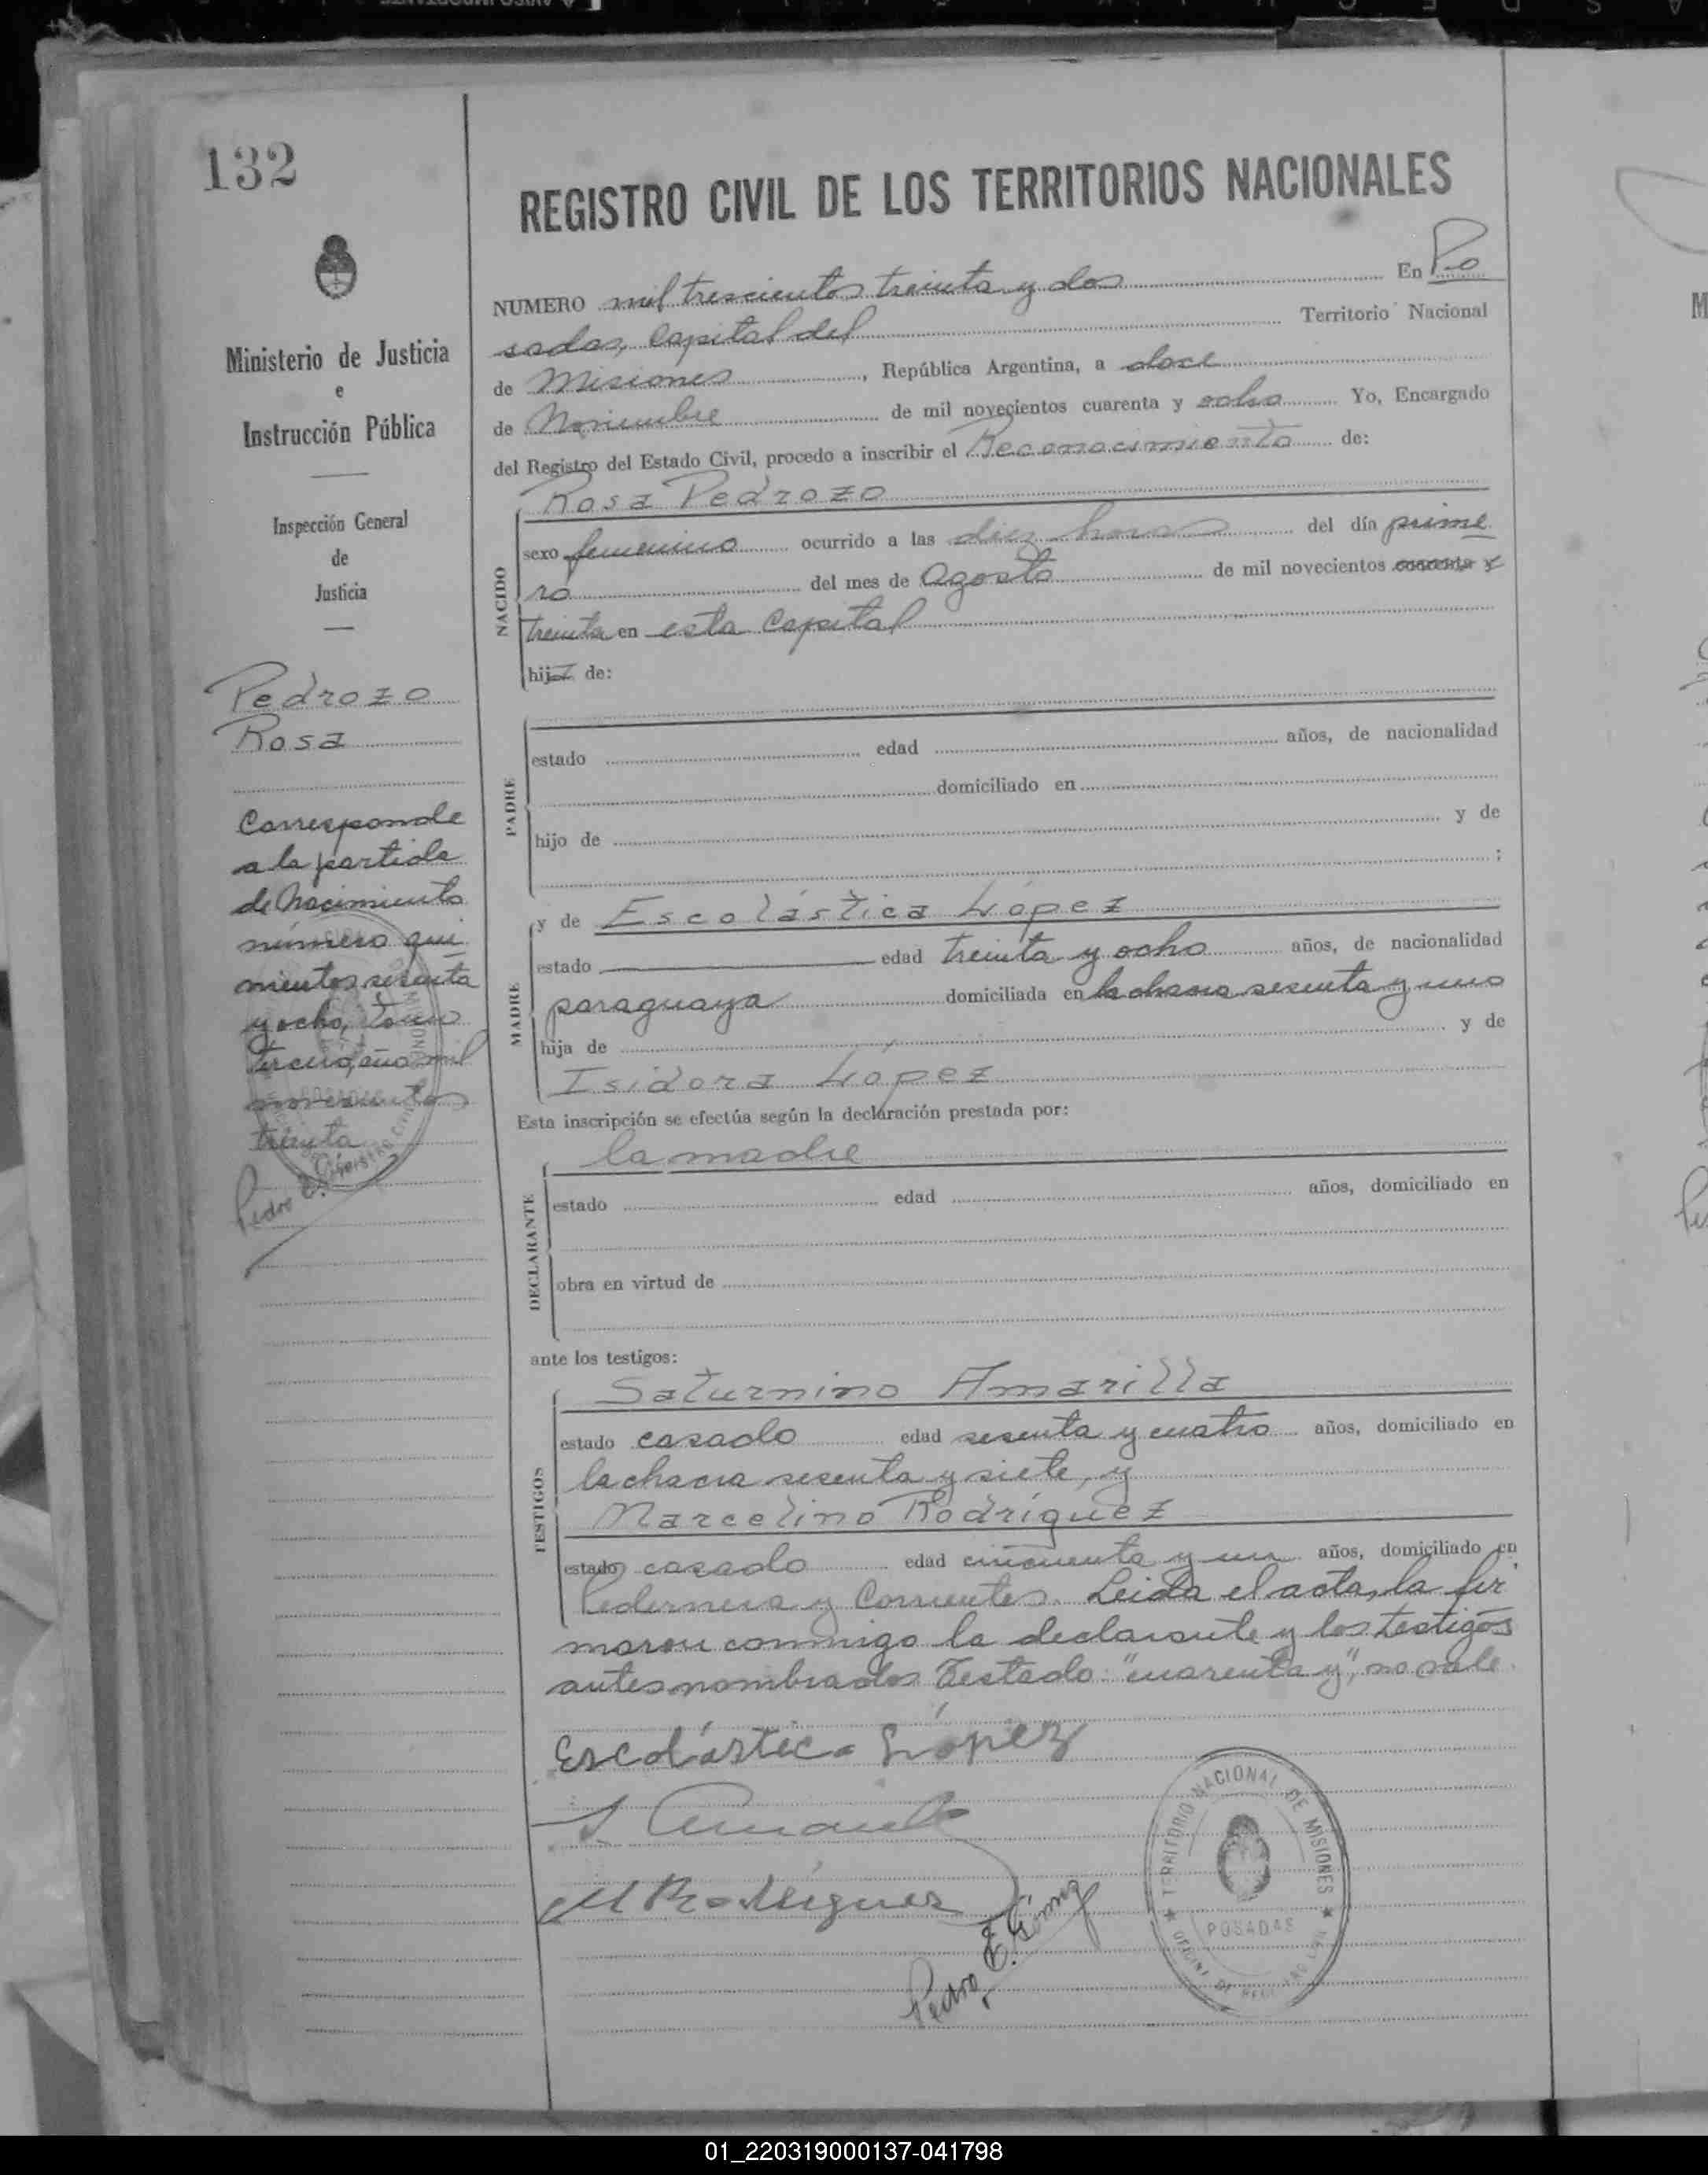 132
REGISTRO CIVIL DE LOS TERRITORIOS NACIONALES
NUMERO mil trescientos treinta y dos En Po
sadas, Capital del Territorio Nacional
de Misiones, República Argentina, a doce
de Noviembre de mil novecientos cuarenta y ocho Yo, Encargado
del Registro del Estado Civil, procedo a inscribir el Reconocimiento de:
Rosa Pedrozo
NACIDO
sexo femenino ocurrido a las diez horas del día prime
ro del mes de Agosto de mil novecientos cuarenta y
treinta en esta Capital
hija de:
PADRE
estado edad años, de nacionalidad
domiciliado en
hijo de y de
;
MADRE
y de Escolástica López
estado edad treinta y ocho años, de nacionalidad
paraguaya domiciliada en la chacra sesenta y uno
hija de y de
Isidora López
Esta inscripción se efectúa según la declaración prestada por:
la madre
DECLARANTE
estado edad años, domiciliado en
obra en virtud de
ante los testigos:
TESTIGOS
Saturnino Amarilla
estado casado edad sesenta y cuatro años, domiciliado en
la chacra sesenta y siete, y
Marcelino Rodríguez
estado casado edad cincuenta y un años, domiciliado en
Pedernera y Corrientes. Leida el acta, la fir
maron conmigo la declarante y los testigos
antes nombrados Testado: "cuarenta y", no vale.
Escolástica López
M Rodríguez
Pedro E. Gómez
TERRITORIO NACIONAL DE MISIONES
POSADAS
OFICINA DE REGISTRO CIVIL
Ministerio de Justicia
e
Instrucción Pública
Inspección General
de
Justicia
Pedrozo
Rosa
Corresponde
a la partida
de Nacimiento
número qui
nientos sesenta
y ocho, Tomo
tercero, año mil
novecientos
treinta
Pedro E. Gómez
01_220319000137-041798